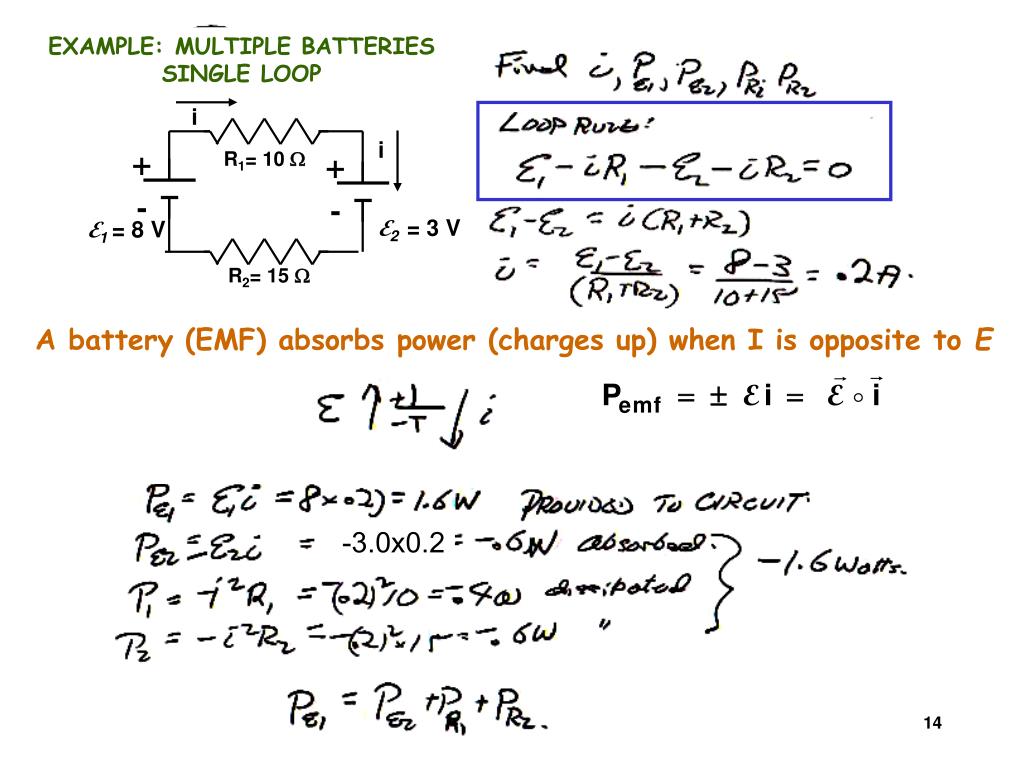 EXAMPLE: MULTIPLE BATTERIES
SINGLE LOOP
i
R1= 10 Ω
+
+
i
-
-
ℰ1 = 8 V
ℰ2 = 3 V
R2= 15 Ω
Find i, Pℰ1, Pℰ2, PR1 PR2
LOOP RULE:
ℰ1 - iR1 - ℰ2 - iR2 = 0
ℰ1 - ℰ2 = i (R1+R2)
i = ℰ1-ℰ2 / (R1+R2) = 8-3 / 10+15 = .2A.
A battery (EMF) absorbs power (charges up) when I is opposite to E
ℰ ↑ + - ↓ i
Pemf = ± ℰ i = ℰ⃗ ∘ i⃗
Pℰ1 = ℰ1i = 8×.2) = 1.6W PROVIDED TO CIRCUIT.
Pℰ2 = -ℰ2i = -3.0x0.2 = -.6W absorbed.
P1 = -i²R1 = -(.2)²10 = -.4W dissipated
P2 = -i²R2 = -(.2)²×15 = -.6W "
} -1.6 Watts.
Pℰ1 = Pℰ2 + PR1 + PR2.
14